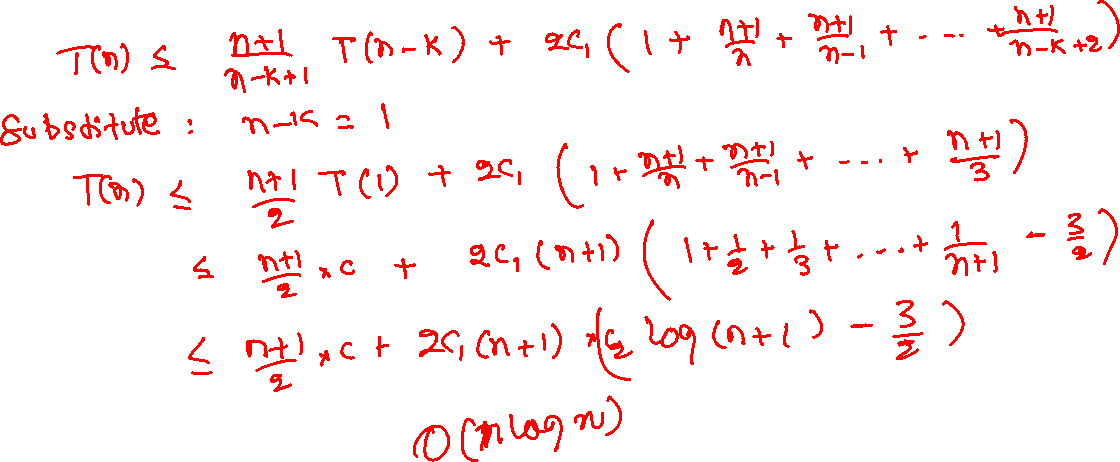 T(n) ≤ \frac{n+1}{n-k+1} T(n-k) + 2c₁ ( 1 + \frac{n+1}{n} + \frac{n+1}{n-1} + .... + \frac{n+1}{n-k+2} )
Substitute : n-k = 1
T(n) ≤ \frac{n+1}{2} T(1) + 2c₁ ( 1 + \frac{n+1}{n} + \frac{n+1}{n-1} + .... + \frac{n+1}{3} )
≤ \frac{n+1}{2} * c + 2c₁ (n+1) ( 1 + \frac{1}{2} + \frac{1}{3} + .... + \frac{1}{n+1} - \frac{3}{2} )
≤ \frac{n+1}{2} * c + 2c₁ (n+1) * ( c₂ log (n+1) - \frac{3}{2} )
O(n log n)